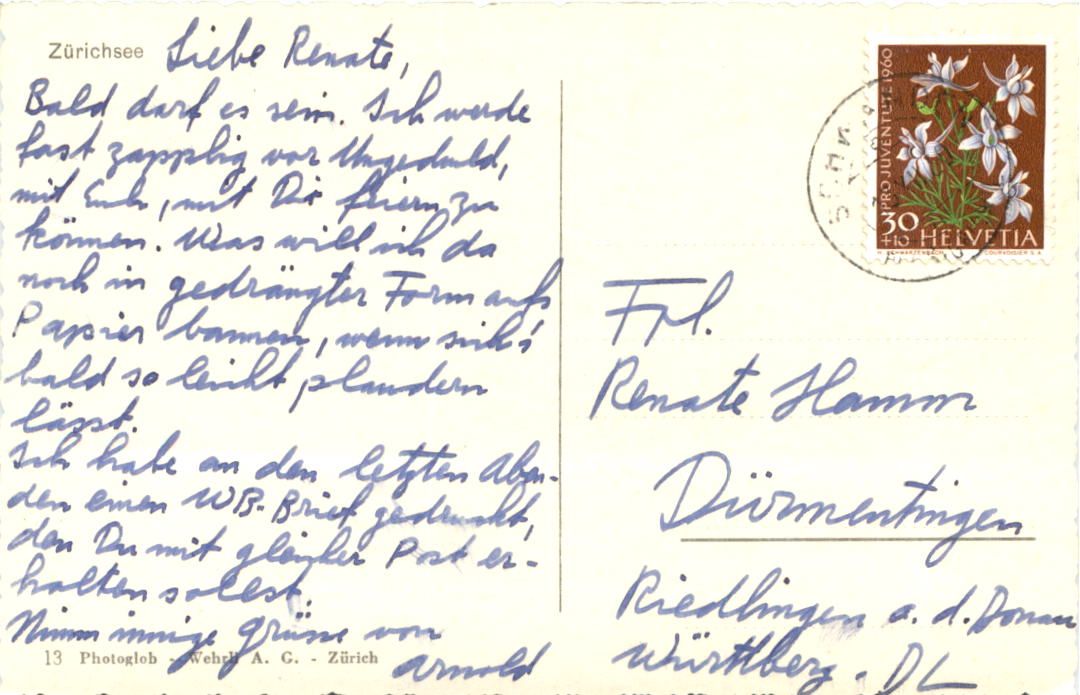 Zürichsee
Liebe Renate,
Bald darf es sein. Ich werde
fast zapplig vor Ungeduld,
mit Euch, mit Dir feiern zu
können. Was will ich da
noch in gedrängter Form aufs
Papier bannen, wenn sich's
bald so leicht plaudern
lässt.
Ich habe an den letzten Aben-
den einen WB-Brief gedruckt,
den Du mit gleicher Post er-
halten sollest.
Nimm innige Grüsse von
Arnold
13 Photoglob - Wehrli A. G. - Zürich
PRO JUVENTUTE 1960
30
+10 HELVETIA
H. SCHWARZENBACH COURVOISIER S.A.
Frl.
Renate Hamm
Dürmentingen
Riedlingen a. d. Donau
Württberg. DL